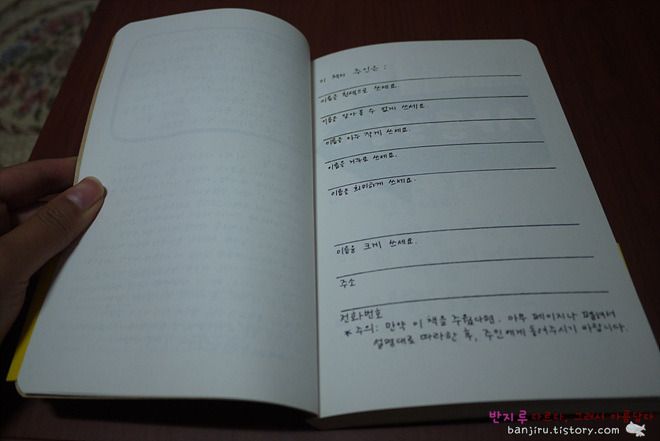 이 책의 주인은 :
이름을 흰색으로 쓰세요.
이름을 알아볼 수 없게 쓰세요.
이름을 아주 작게 쓰세요.
이름을 거꾸로 쓰세요.
이름을 희미하게 쓰세요.
이름을 크게 쓰세요.
주소
전화번호
* 주의: 만약 이 책을 주웠다면, 아무 페이지나 펼쳐서
설명대로 따라한 후, 주인에게 돌려주시기 바랍니다.
반지루 다르다, 그래서 아름답다
banjiru.tistory.com